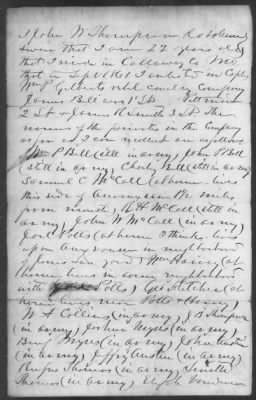 I John W Thompson do solemnly
swear that I am 22 years old
that I reside in Callaway Co Mo.
that in Sept 1861 I enlisted in Capt
Wm P. Gilberts rebel cavalry company
James Bell was 1st Lt. Pittman
2 Lt & James 3 Lt The
names of the privates in the company
as far as I can recollect are as follows
Wm P Bell (still in army, John P Bell
(still in army, Charley Bell (still in army
Samuel C McCall (at home lives
this side of miles
from mouth, McCall (still in
army, John W McCall (in army)
Joe Potts (at home I thinks lives
upon in neighborhood
of Wm Harvey (at
home lives in same neighborhood
with Potts, Geo Fletcher (at
home lives near Potts & Harvey,
W A Collins (in army, J B Thompson
(in army, Joshua Myers (in army,
Benj Myers (in army, John Austin
(in army, Jeffrey Austin (in army)
Rufus Thomas (in army,
Thomas (in army, Elijah